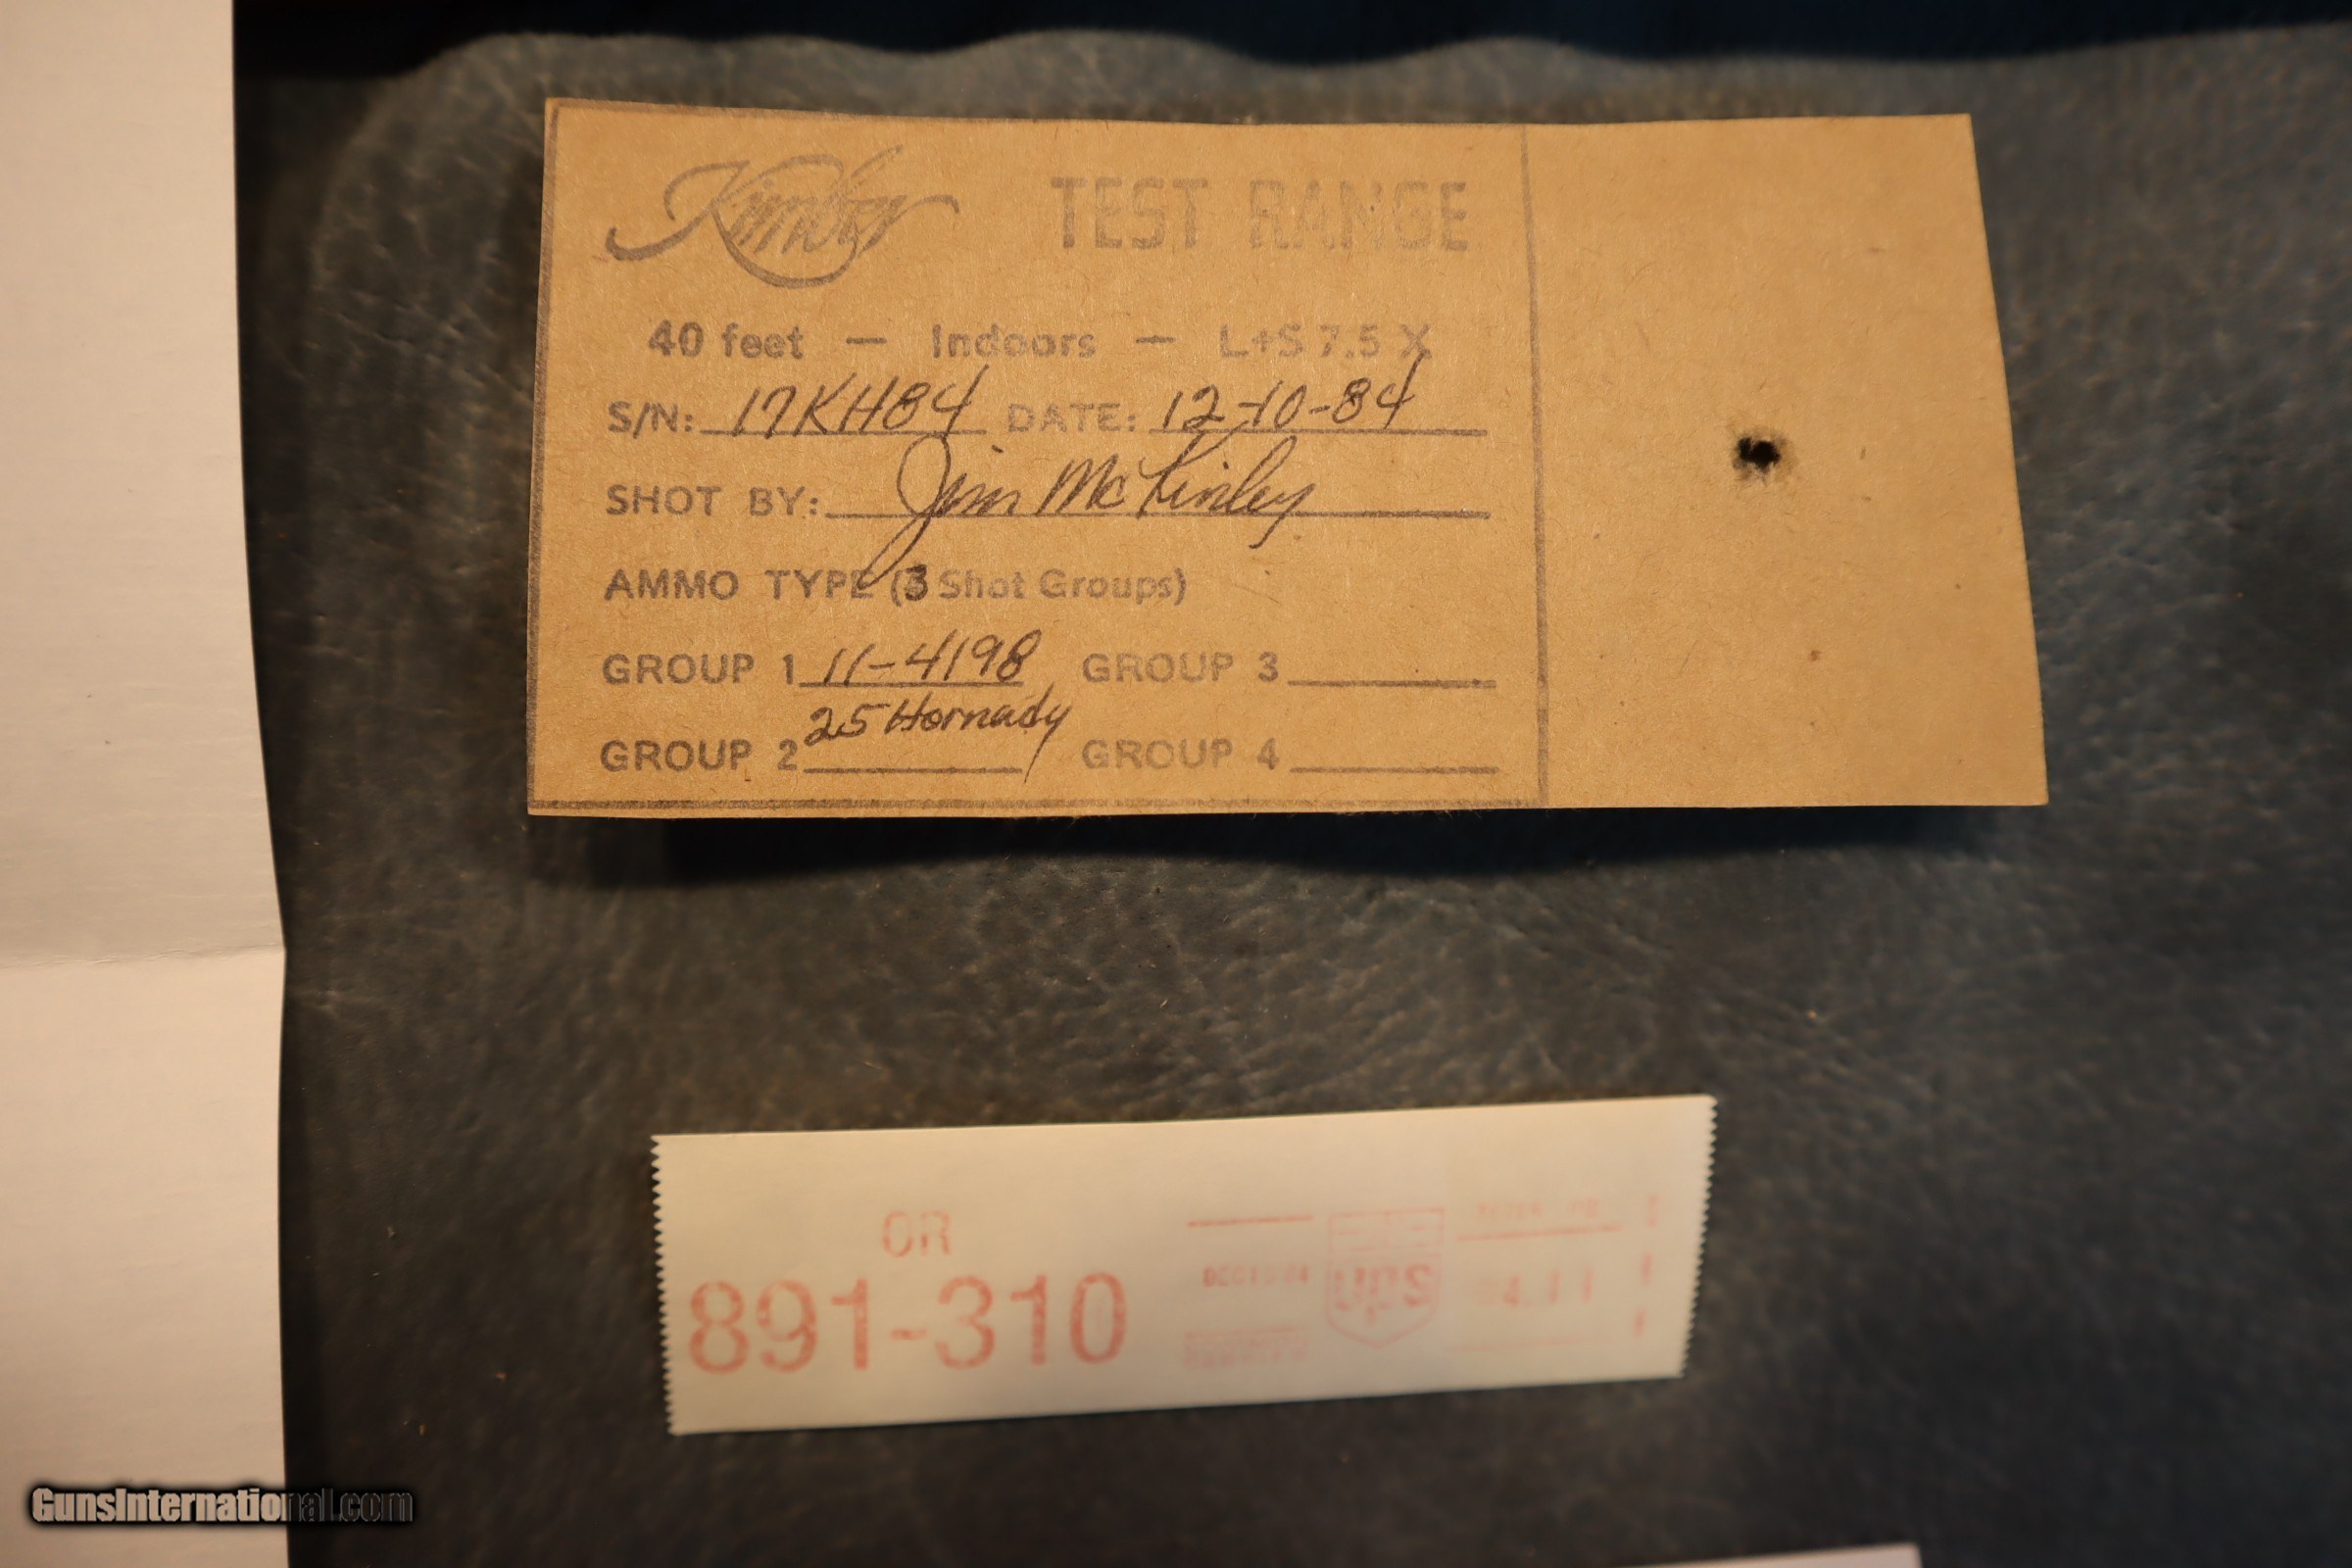 Kimber TEST RANGE
40 feet — Indoors — L+S 7.5 X
S/N: 17KH84 DATE: 12-10-84
SHOT BY: Jim McKinley
AMMO TYPE (3 Shot Groups)
GROUP 1 11-4198 GROUP 3
25 Hornady
GROUP 2 GROUP 4
OR
891-310
ups
GunsInternational.com